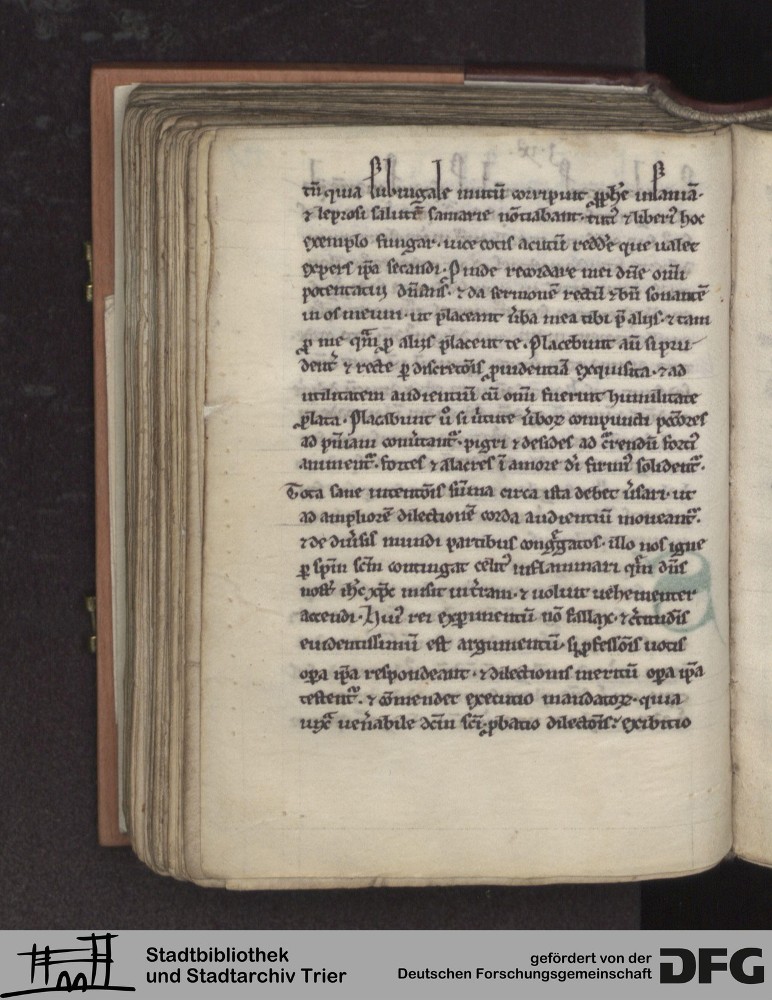 tñ quia subiugale mutũ corripuit ꝓph̃e insaniã·
⁊ leprosi salutẽ samarie nũtiabant· tut᷒ ⁊ liber᷒ hoc
exemplo fungar· uice cotis acutũ redde que ualet
expers ip̃a secandi· Proinde recordare mei dñe om̃i
potentatui dñans· ⁊ da sermonẽ rectũ ⁊ bñ sonantẽ
in os meum· ut placeant ũba mea tibi p̃ alijs· ⁊ tam
ꝓ me qm̃ ꝓ alijs placent te· Placebunt aũ si pru-
dent᷒ ⁊ recte ꝑ discretõis ꝓuidentiã exquisita· ⁊ ad
utilitatem audientiũ cũ om̃i fuerint humilitate
ꝓlata· Placebunt ů si uirtute ũboꝝ compuncti pcc̃ores
ad pñiam conuertant᷒· pigri ⁊ desides ad currendũ forti᷒
animent᷒· fortes ⁊ alacres ĩ amore di᷒ firmi᷒ solident᷒·
Tota sane intentõis sũma circa ista debet uersari· ut
ad ampliorẽ dilectionẽ corda audientiũ moueant᷒·
⁊ de diũsis mundi partibus congregatos· illo nos igne
ꝑ spm̃ scm̃ contingat celit᷒ inflammari quẽ dñs
nost᷒ ih̃c xp̃c misit in terram· ⁊ uoluit uehementer
accendi· Hui᷒ rei experimentũ nõ fallax· ⁊ certitudĩs
euidentissimũ est argumentũ· si ꝓfessõis uotis
opera ip̃a respondeant· ⁊ dilectionis meritũ opera ip̃a
testent᷒· ⁊ cõmendet executio mandatoꝝ· quia
iuxta uenerabile dc̃m sci᷒ ꝓbatio dilectõis: exibitio
Stadtbibliothek
und Stadtarchiv Trier
gefördert von der
Deutschen Forschungsgemeinschaft
DFG